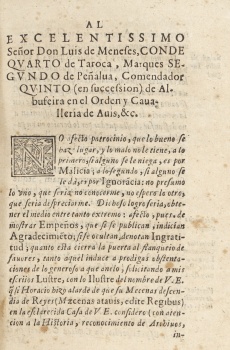 AL
EXCELENTISSIMO
Señor Don Luis de Meneses, CONDE
QVARTO de Taroca, Marques SE-
GVNDO de Peñalua, Comendador
QVINTO (en succession) de Al-
bufeira en el Orden y Caua-
lleria de Auis, &c.
NO afecto patrocinio, que lo bueno se
haz lugar, y lo malo no le tiene, a lo
primero, si alguno se le niega, es por
Malicia; a lo segundo, si alguno se
le dà, es por Ignorãcia: no presumo
lo vno, que seria no conocerme, no espero lo otro,
que seria despreciarme. Dichoso logro seria, obte-
ner el medio entre tanto extremo: afecto, pues, de
mostrar Empeños, que si se publican, indician
Agradecimiento; si se ocultan, denotan Ingrati-
tud; quanto esta cierra la puerta al flanqueo de
fauores, tanto aquel induce a prodigas obstenta-
ciones de lo generoso a que anelo, felicitando a mis
escritos Lustre, con lo Ilustre del nombre de V.E.
q̃ si Horacio hizo alarde de que su Mecenas descen-
dia de Reyes (Mæcenas atauis, edite Regibus)
en la esclarecida Casa de V.E. considero (con aten-
cion a la Historia, reconocimiento de Archiuos,
in-